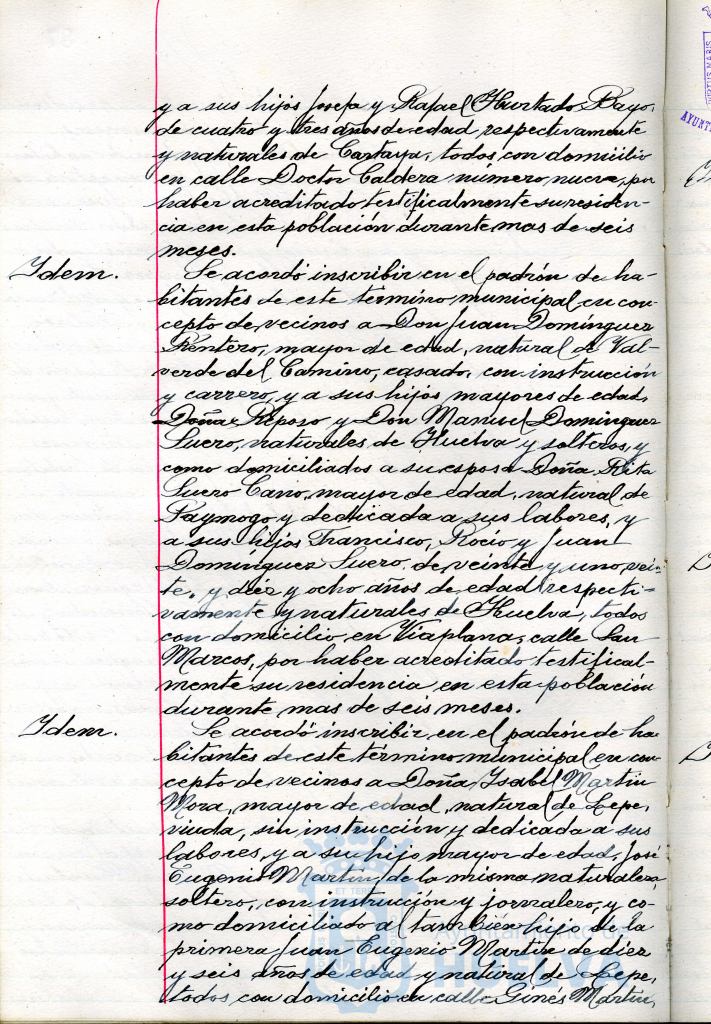 y a sus hijos Josefa y Rafael Hurtado Bayo,
de cuatro y tres años de edad respectivamente
y naturales de Cartaya, todos con domicilio
en calle Doctor Caldera numero nueve, por
haber acreditado testificalmente su residen-
cia en esta población durante mas de seis
meses.
Idem. Se acordó inscribir en el padrón de ha-
bitantes de este término municipal en con-
cepto de vecinos a Don Juan Domínguez
Rentero, mayor de edad, natural de Val-
verde del Camino, casado, con instrucción
y carrero, y a sus hijos mayores de edad,
Doña Reposo y Don Manuel Domínguez
Suero, naturales de Huelva y solteros, y
como domiciliados a su esposa Doña Rita
Suero Cano, mayor de edad, natural de
Paymogo y dedicada a sus labores, y
a sus hijos Francisco, Rocio y Juan
Domínguez Suero, de veinte y uno, vein-
te, y diez y ocho años de edad respecti-
vamente y naturales de Huelva, todos
con domicilio en Viaplana, calle San
Marcos, por haber acreditado testifical-
mente su residencia en esta población
durante mas de seis meses.
Idem. Se acordó inscribir en el padrón de ha-
bitantes de este término municipal en con-
cepto de vecinos a Doña Isabel Martín
Mora, mayor de edad, natural de Lepe,
viuda, sin instrucción y dedicada a sus
labores, y a su hijo mayor de edad, José
Eugenio Martín, de la misma naturaleza,
soltero, con instrucción y jornalero, y co-
mo domiciliado al también hijo de la
primera Juan Eugenio Martín de diez
y seis años de edad y natural de Lepe,
todos con domicilio en calle Ginés Martín,